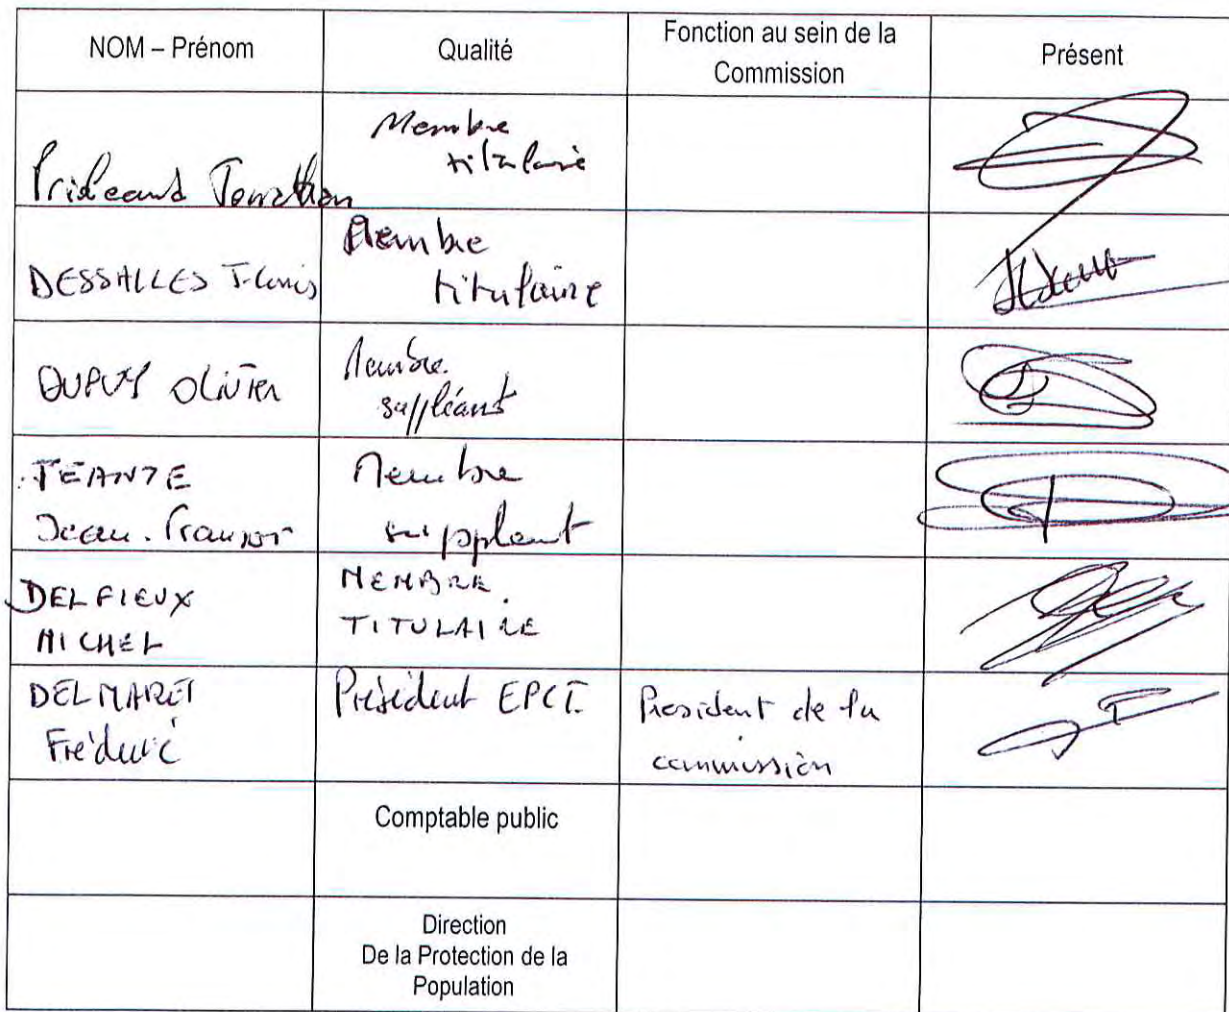 NOM – Prénom
Qualité
Fonction au sein de la
Commission
Présent
Prideaud Jonathan
Membre
titulaire
DESSALLES J-Louis
Membre
titulaire
DUPUY OLIVIER
Membre
suppléant
TEANTE
Jean-François
Membre
suppléant
DELFIEUX
MICHEL
MEMBRE
TITULAIRE
DELMARET
Frédéric
Président EPCI
Président de la
commission
Comptable public
Direction
De la Protection de la
Population